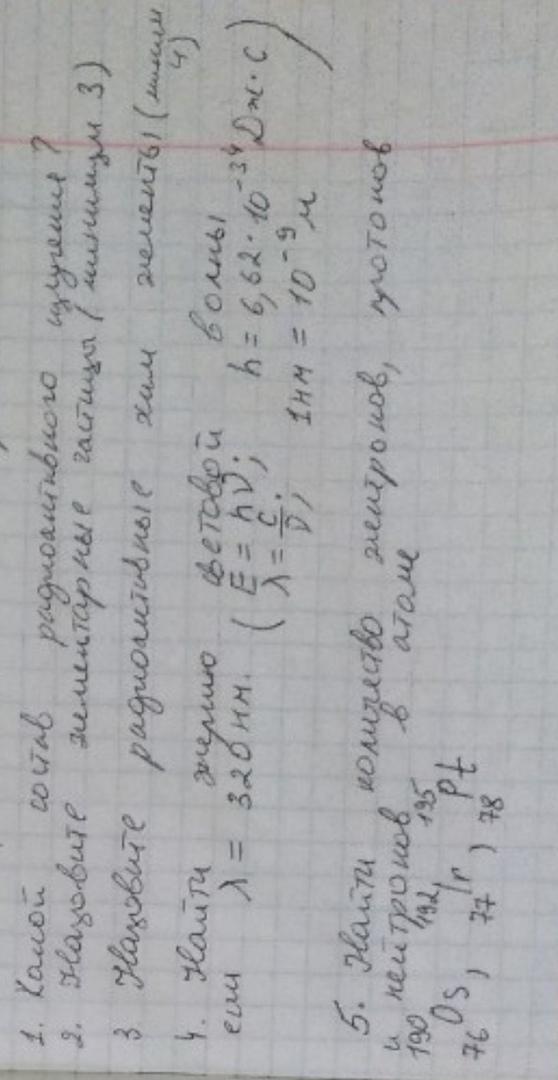 1. Какой состав радиоактивного излучения?
2. Назовите элементарные частицы (минимум 3)
3 Назовите радиоактивные хим элементы (миним 4)
4. Найти энергию световой волны
если λ = 320 нм. (E = hν; h = 6,62·10⁻³⁴ Дж·с)
λ = c/ν; 1нм = 10⁻⁹ м
5. Найти количество электронов, протонов
и нейтронов в атоме
¹⁹⁰₇₆Os, ¹⁹²₇₇Ir, ¹⁹⁵₇₈Pt